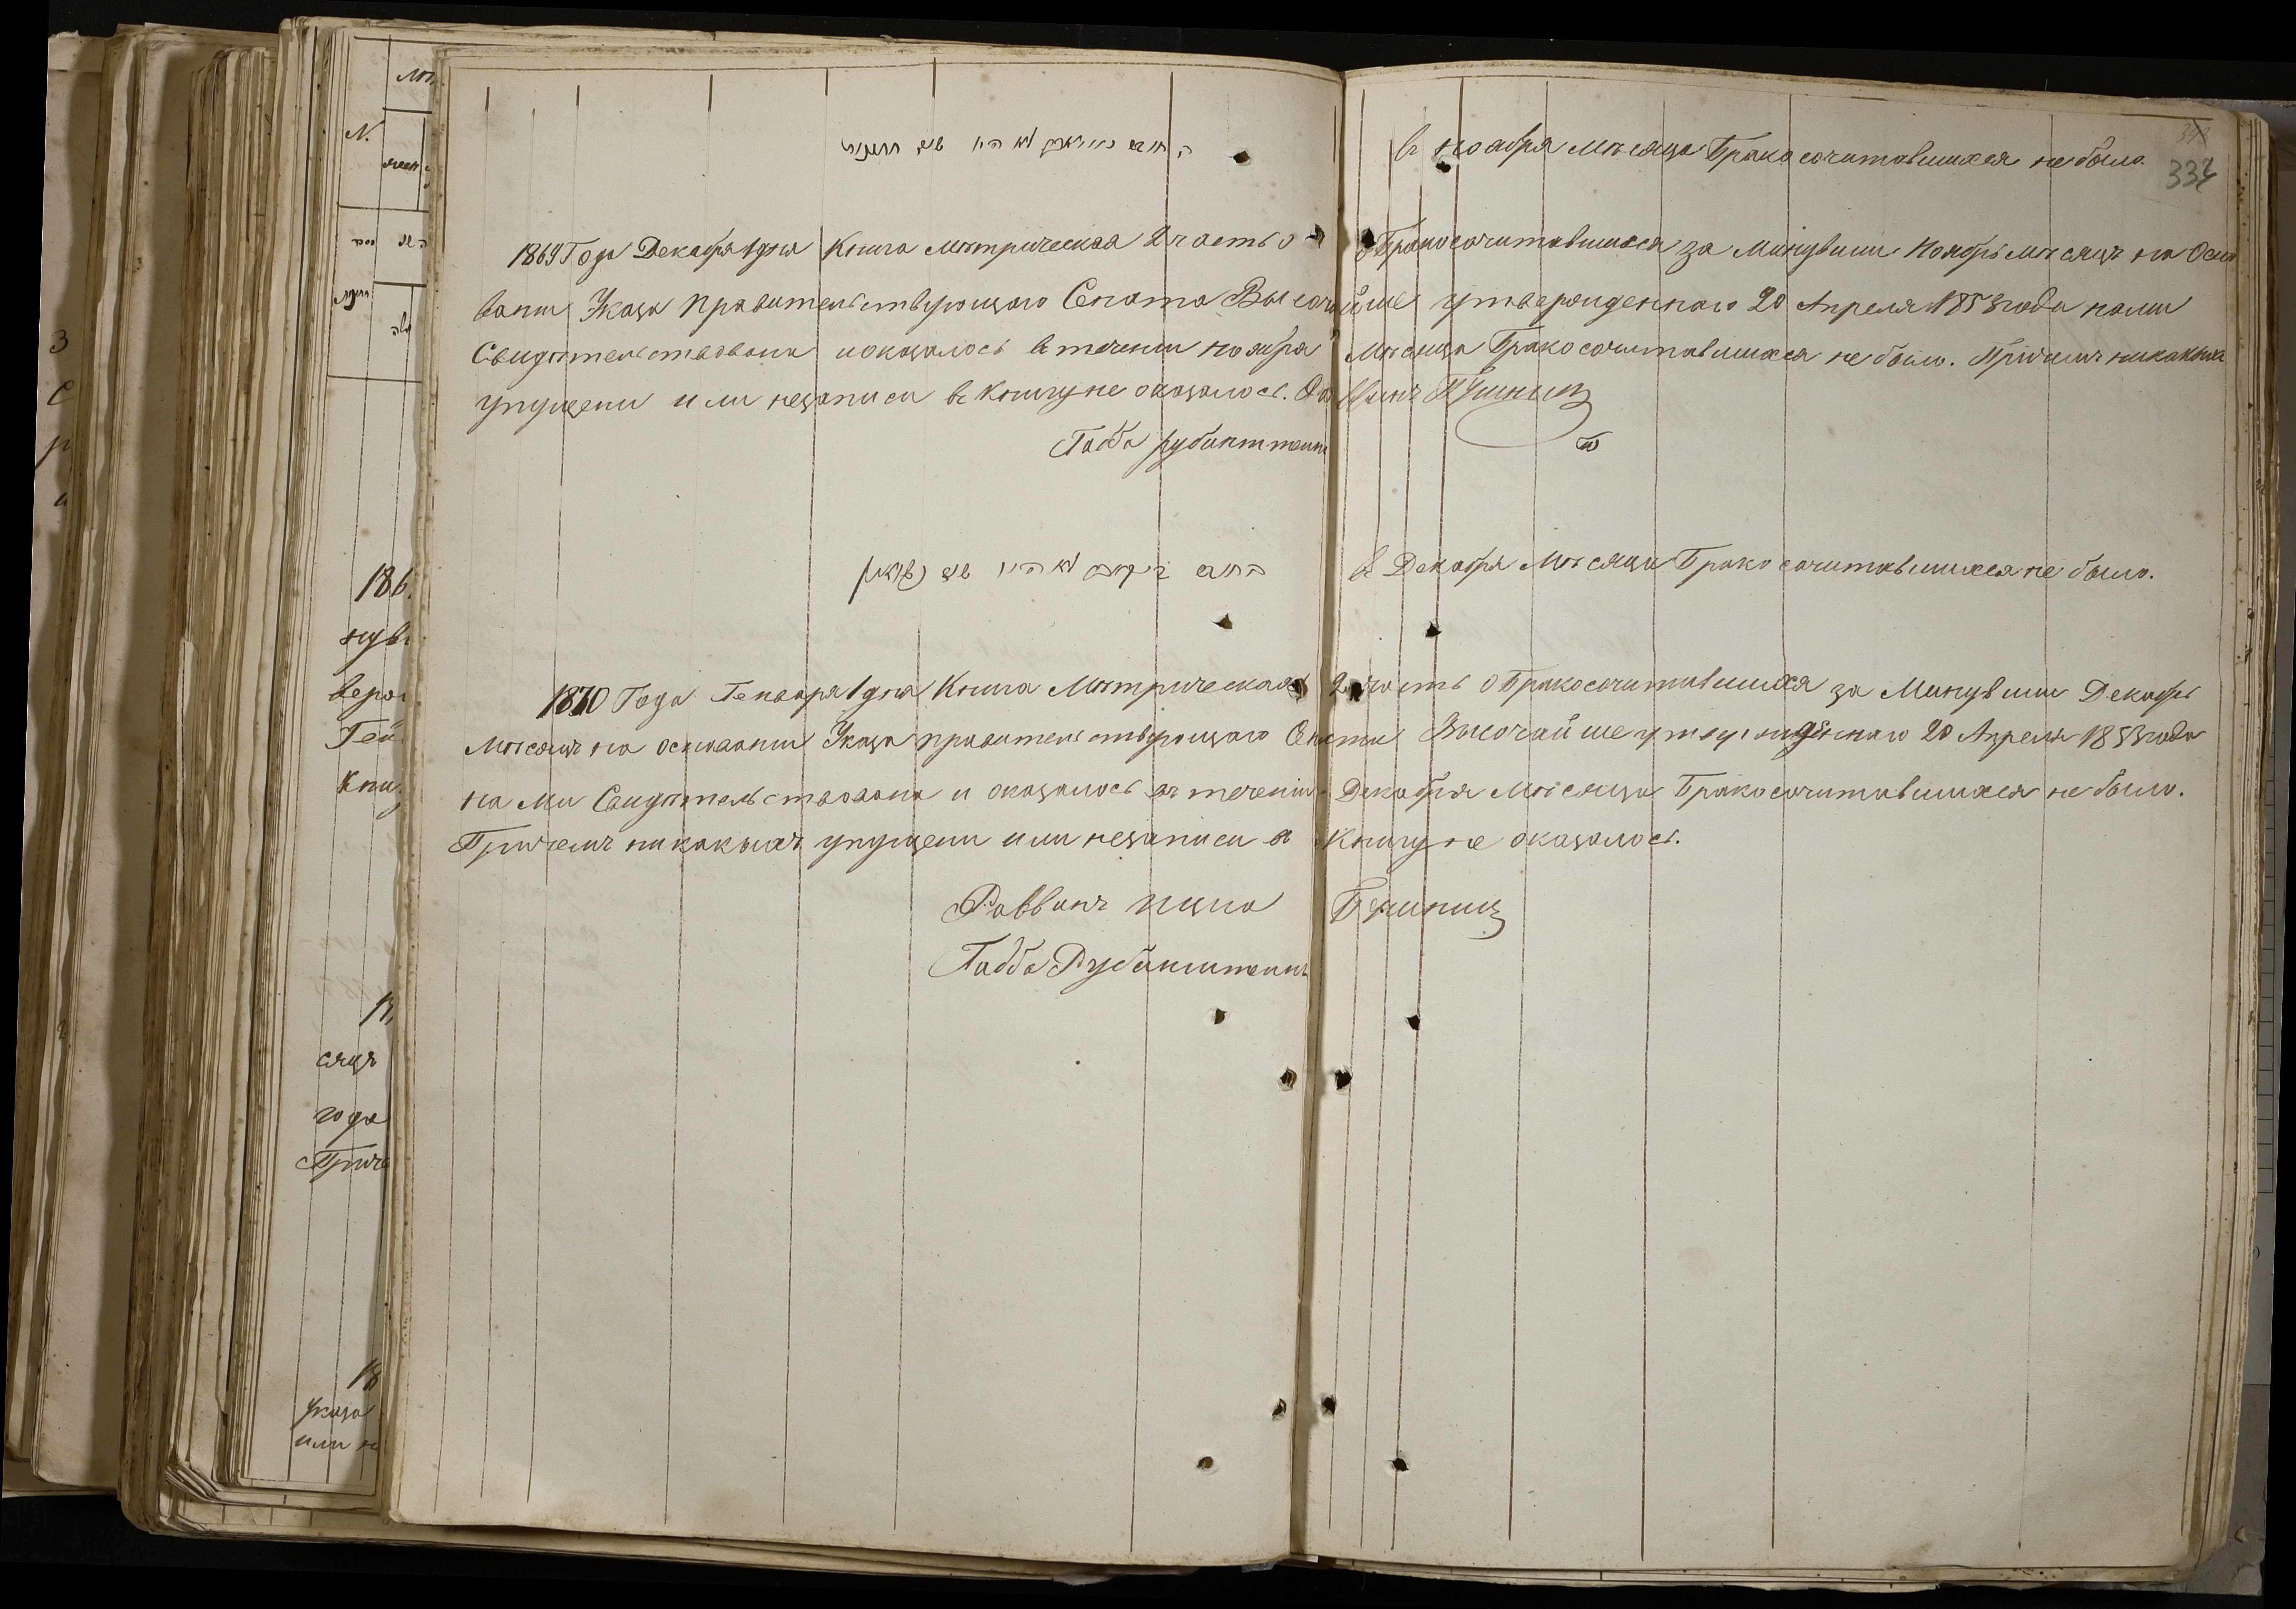 в ноября мѣсяца Бракосочитавшихся не было.
334
1869 Года Декабря 1 дня Книга Мѣтрическая 2 часть о Бракосочитавшихся за Минувши Ноябрь мѣсяцъ на Осно
вани Указа Правительствующаго Сената Высочайше утвержденнаго 20 Апреля 1853 года нами
Свидѣтельствована и оказалось в течени ноября Мѣсяца Бракосочитавшихся не было. Причемъ никакихъ
упущени или незаписи в книгу не оказалось.
Габа Рубинштеин
חודש לא היו
в Декабря Мѣсяца Бракосочитавшихся не было.
1870 Года Генваря 1 дня Книга Мѣтрическая 2 часть о Бракосочитавшихся за Минувши Декабрь
Мѣсяцъ на основани Указа правительствующаго Сената Высочайше утвержденнаго 20 Апреля 1853 года
нами Свидѣтельствована и оказалось въ течени Декабря Мѣсяца Бракосочитавшихся не было.
Причемъ никакихъ упущени или незаписи в Книгу не оказалось.
Раввинъ
Габба Рубинштеинъ
N.
186
нувш
Кни
сяцъ
года
Приче
18
Указа
или н